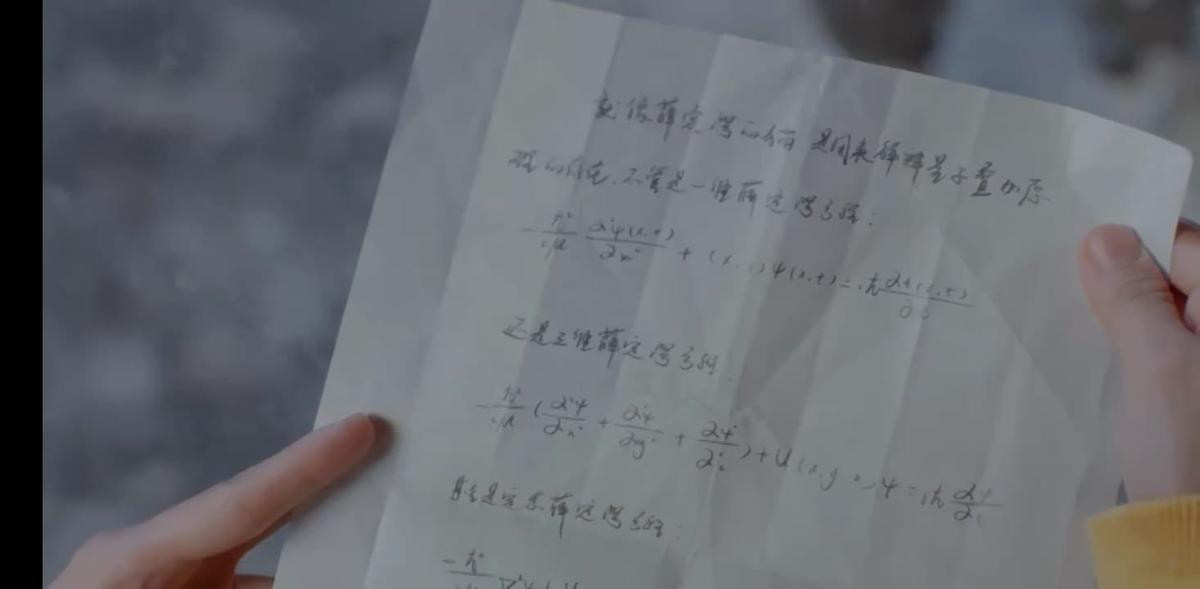 就像薛定谔的猫 是用来解释量子叠加原
理的存在.不管是一维薛定谔方程:
-ħ²/2μ ∂²ψ(x,t)/∂x² + U(x,t)ψ(x,t)=iħ ∂ψ(x,t)/∂t
还是三维薛定谔方程.
-ħ²/2μ (∂²ψ/∂x² + ∂²ψ/∂y² + ∂²ψ/∂z²)+U(x,y,z)ψ=iħ ∂ψ/∂t
甚至是定态薛定谔方程: